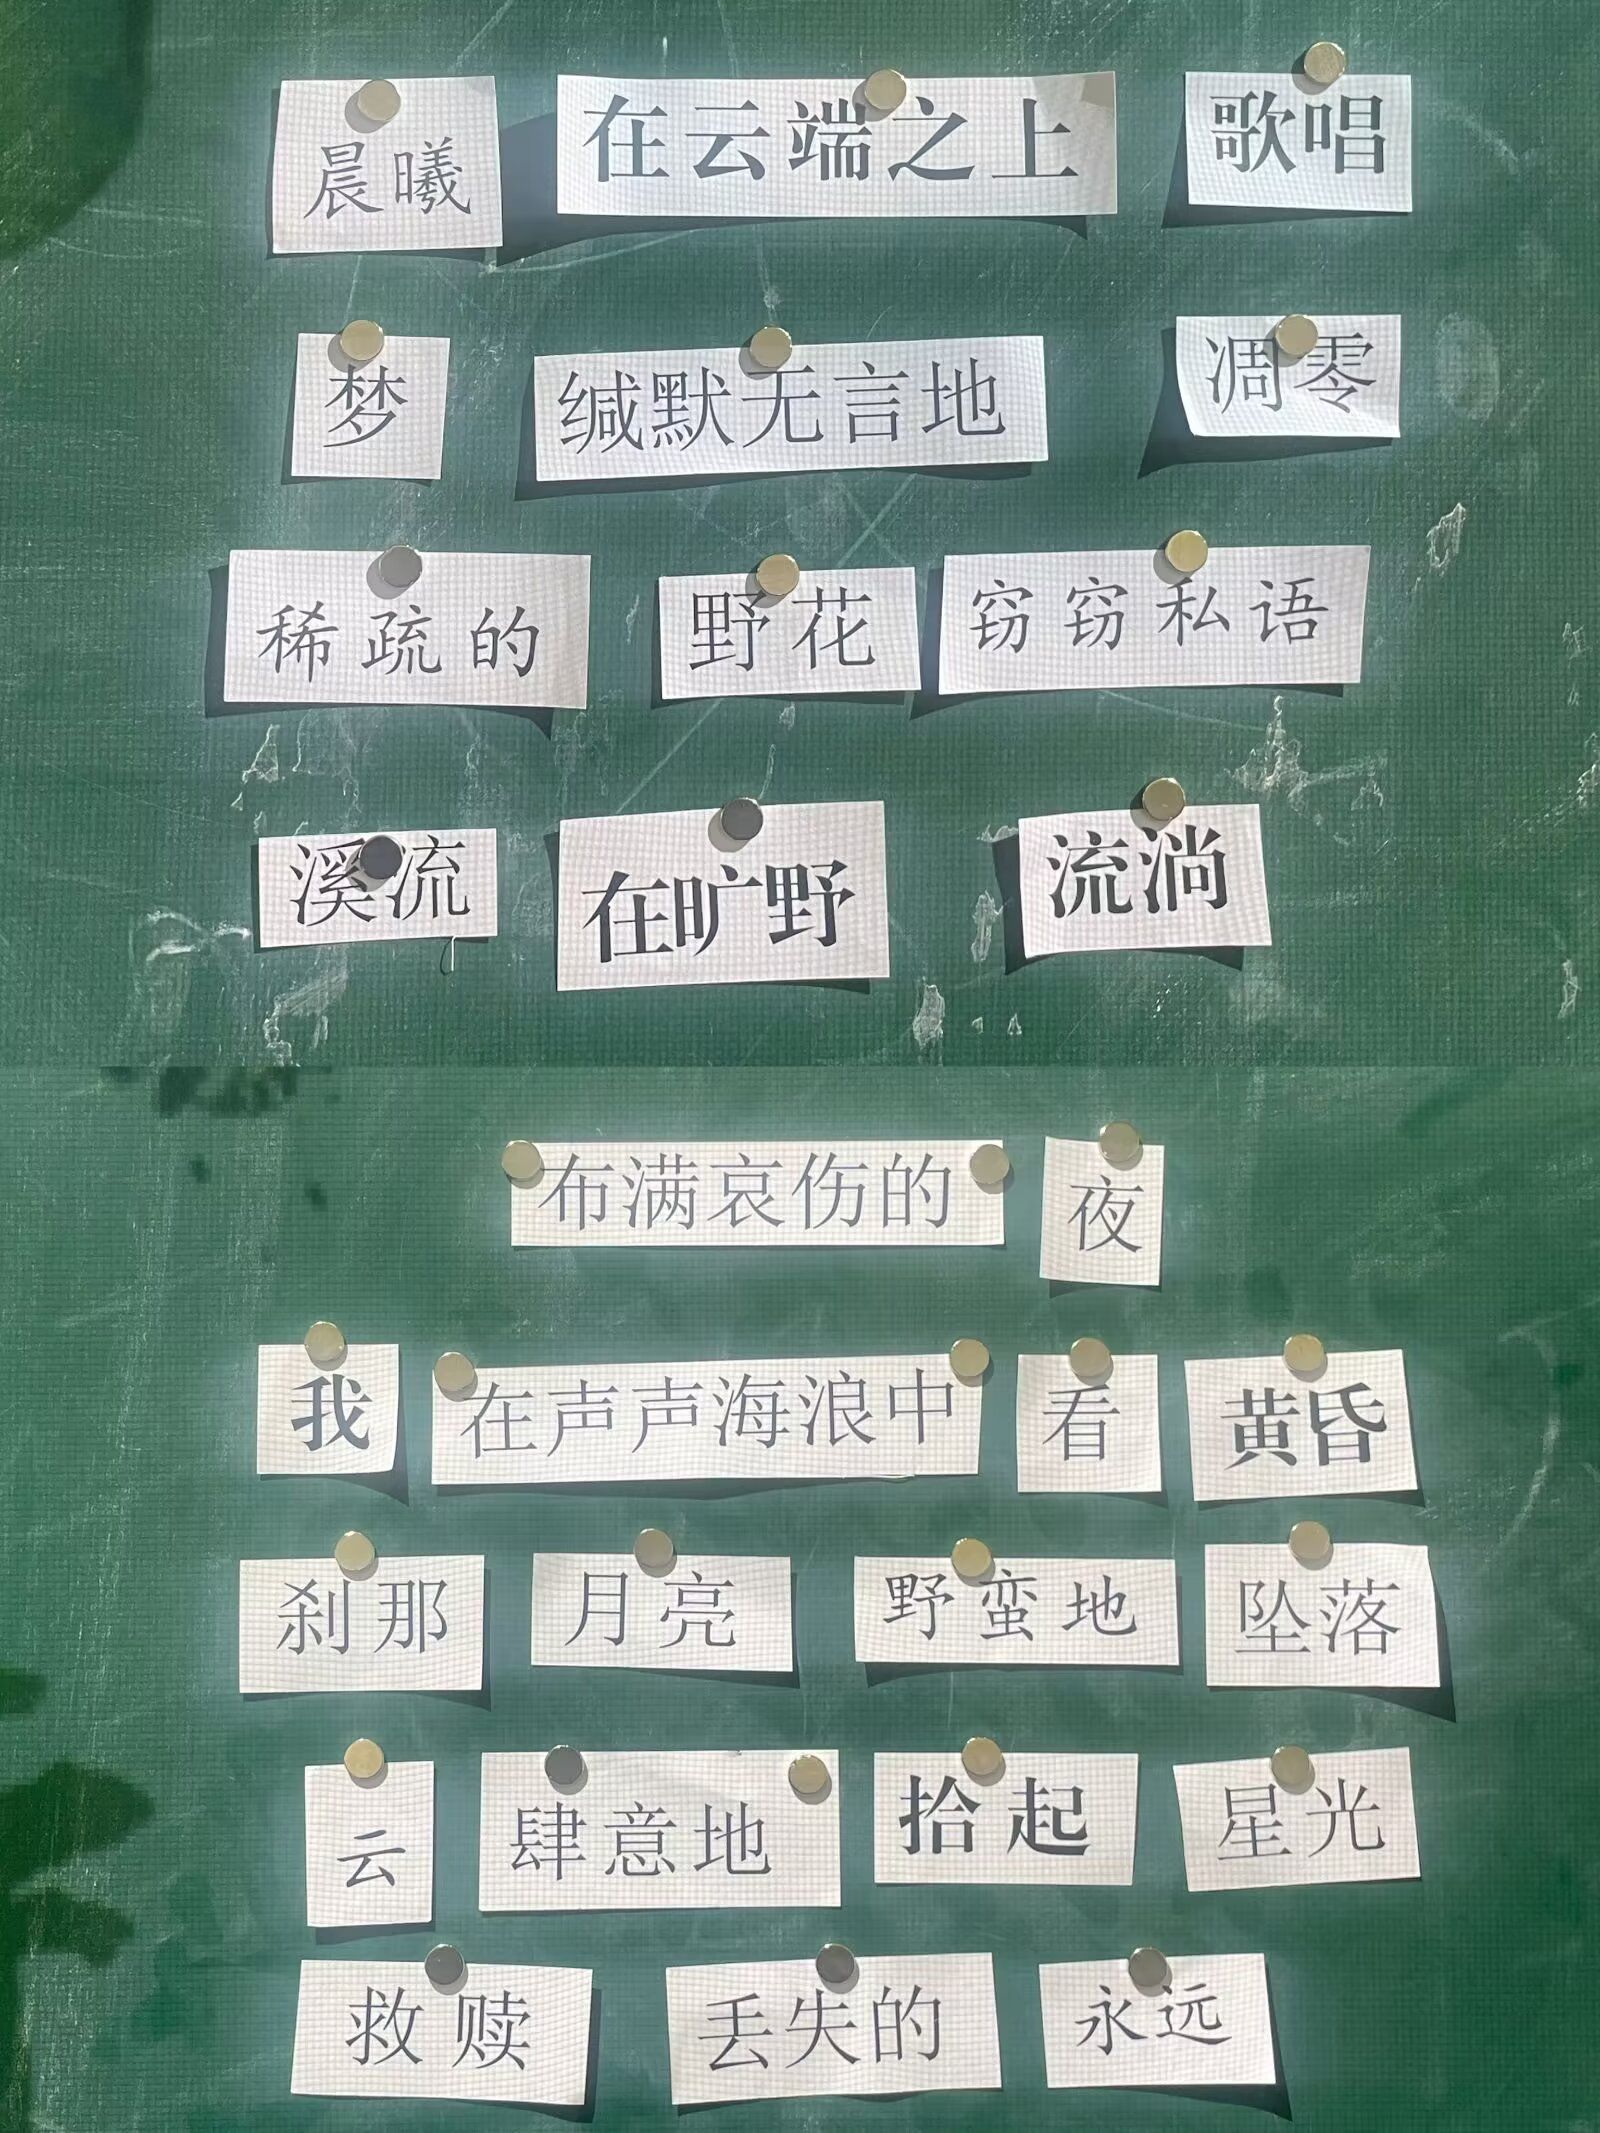 晨曦 在云端之上 歌唱
梦 缄默无言地 凋零
稀疏的 野花 窃窃私语
溪流 在旷野 流淌
布满哀伤的 夜
我 在声声海浪中 看 黄昏
刹那 月亮 野蛮地 坠落
云 肆意地 拾起 星光
救赎 丢失的 永远